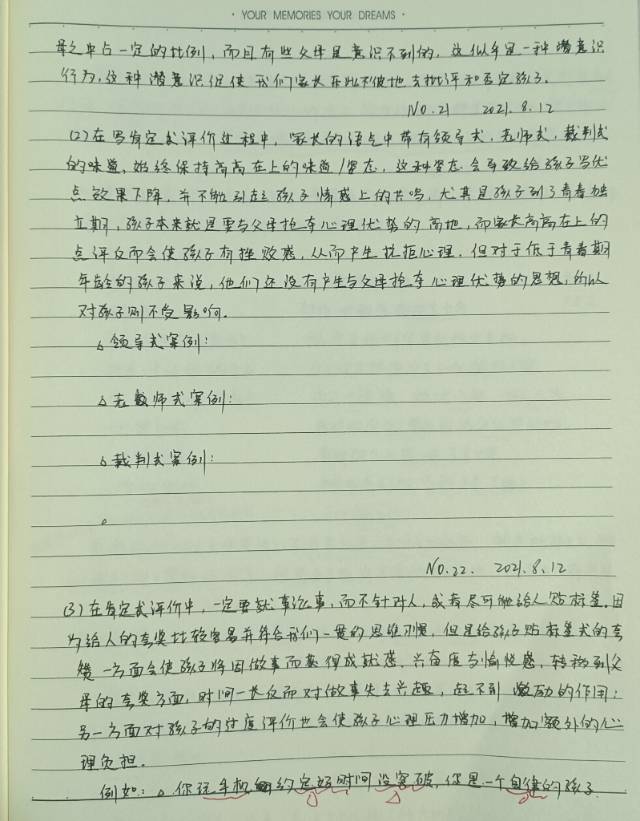 · YOUR MEMORIES YOUR DREAMS ·
母之中占一定的比例，而且有些父母是意识不到的，这似乎是一种潜意识
行为，这种潜意识促使我们家长在此彼地去批评和否定孩子。
NO.21 2021.8.12
(2)在写肯定式评价过程中，家长的语气中带有领导式，老师式，裁判式
的味道，始终保持高高在上的味道/姿态，这种姿态会导致给孩子写优
点效果下降，并不能引起孩子情感上的共鸣，尤其是孩子到了青春独
立期，孩子本来就是要与父母抢夺心理优势的高地，而家长高高在上的
点评反而会使孩子有挫败感，从而产生抗拒心理，但对于低于青春期
年龄的孩子来说，他们还没有产生与父母抢夺心理优势的思想，所以
对孩子则不受影响。
△领导式案例：
△老师式案例：
△裁判式案例：
NO.22. 2021.8.12
(3)在肯定式评价中，一定要就事论事，而不针对人，或者尽可能给人贴标签，因
为给人的夸奖比较容易并符合我们一贯的思维习惯，但是给孩子贴标签式的夸
奖一方面会使孩子将因做事而获得成就感，兴奋度与愉悦感，转移到父
母的夸奖方面，时间一长反而对做事失去兴趣，起不到激励的作用；
另一方面对孩子的过度评价也会使孩子心理压力增加，增加额外的心
理负担。
例如：。你玩手机约定好时间没突破，你是一个自律的孩子